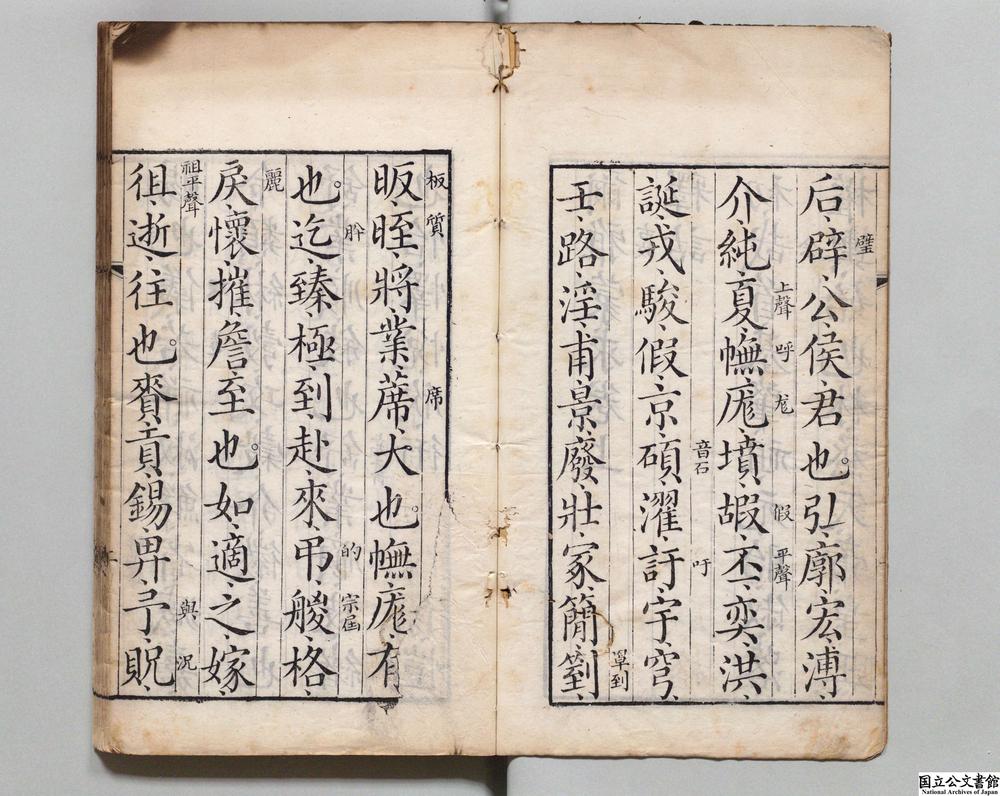 璧
后、辟、公、侯君也。弘、廓、宏、溥、
上聲 呼 尨 假 平聲
介、純、夏、幠、厖、墳、嘏、丕、奕、洪、
音石 吁
誕、戎、駿、假、京、碩、濯、訏、宇、穹、
罩到
壬、路、淫、甫、景、廢、壯、冢、簡、箌、
板 質 席
昄、晊、將、業、蓆、大也。幠、厖、有
的 宗屆
也。迄、臻、極、到、赴、來、弔、艐、格、
麗
戾、懷、摧、詹、至也。如、適、之、嫁、
祖平聲 與 況
徂、逝、往也。賚、貢、錫、畀、予、貺、
国立公文書館
National Archives of Japan